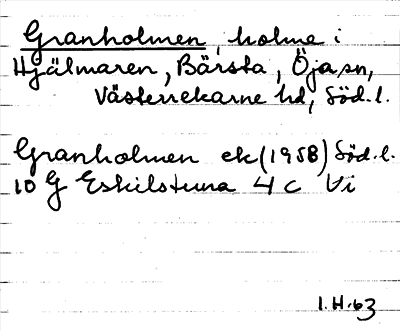 Granholmen, holme i
Hjälmaren, Bärsta, Öja sn,
Västerrekarne hd, Söd. l.
Granholmen ek (1958) Söd. l.
10 G Eskilstuna 4 c Vi
I.H. 63